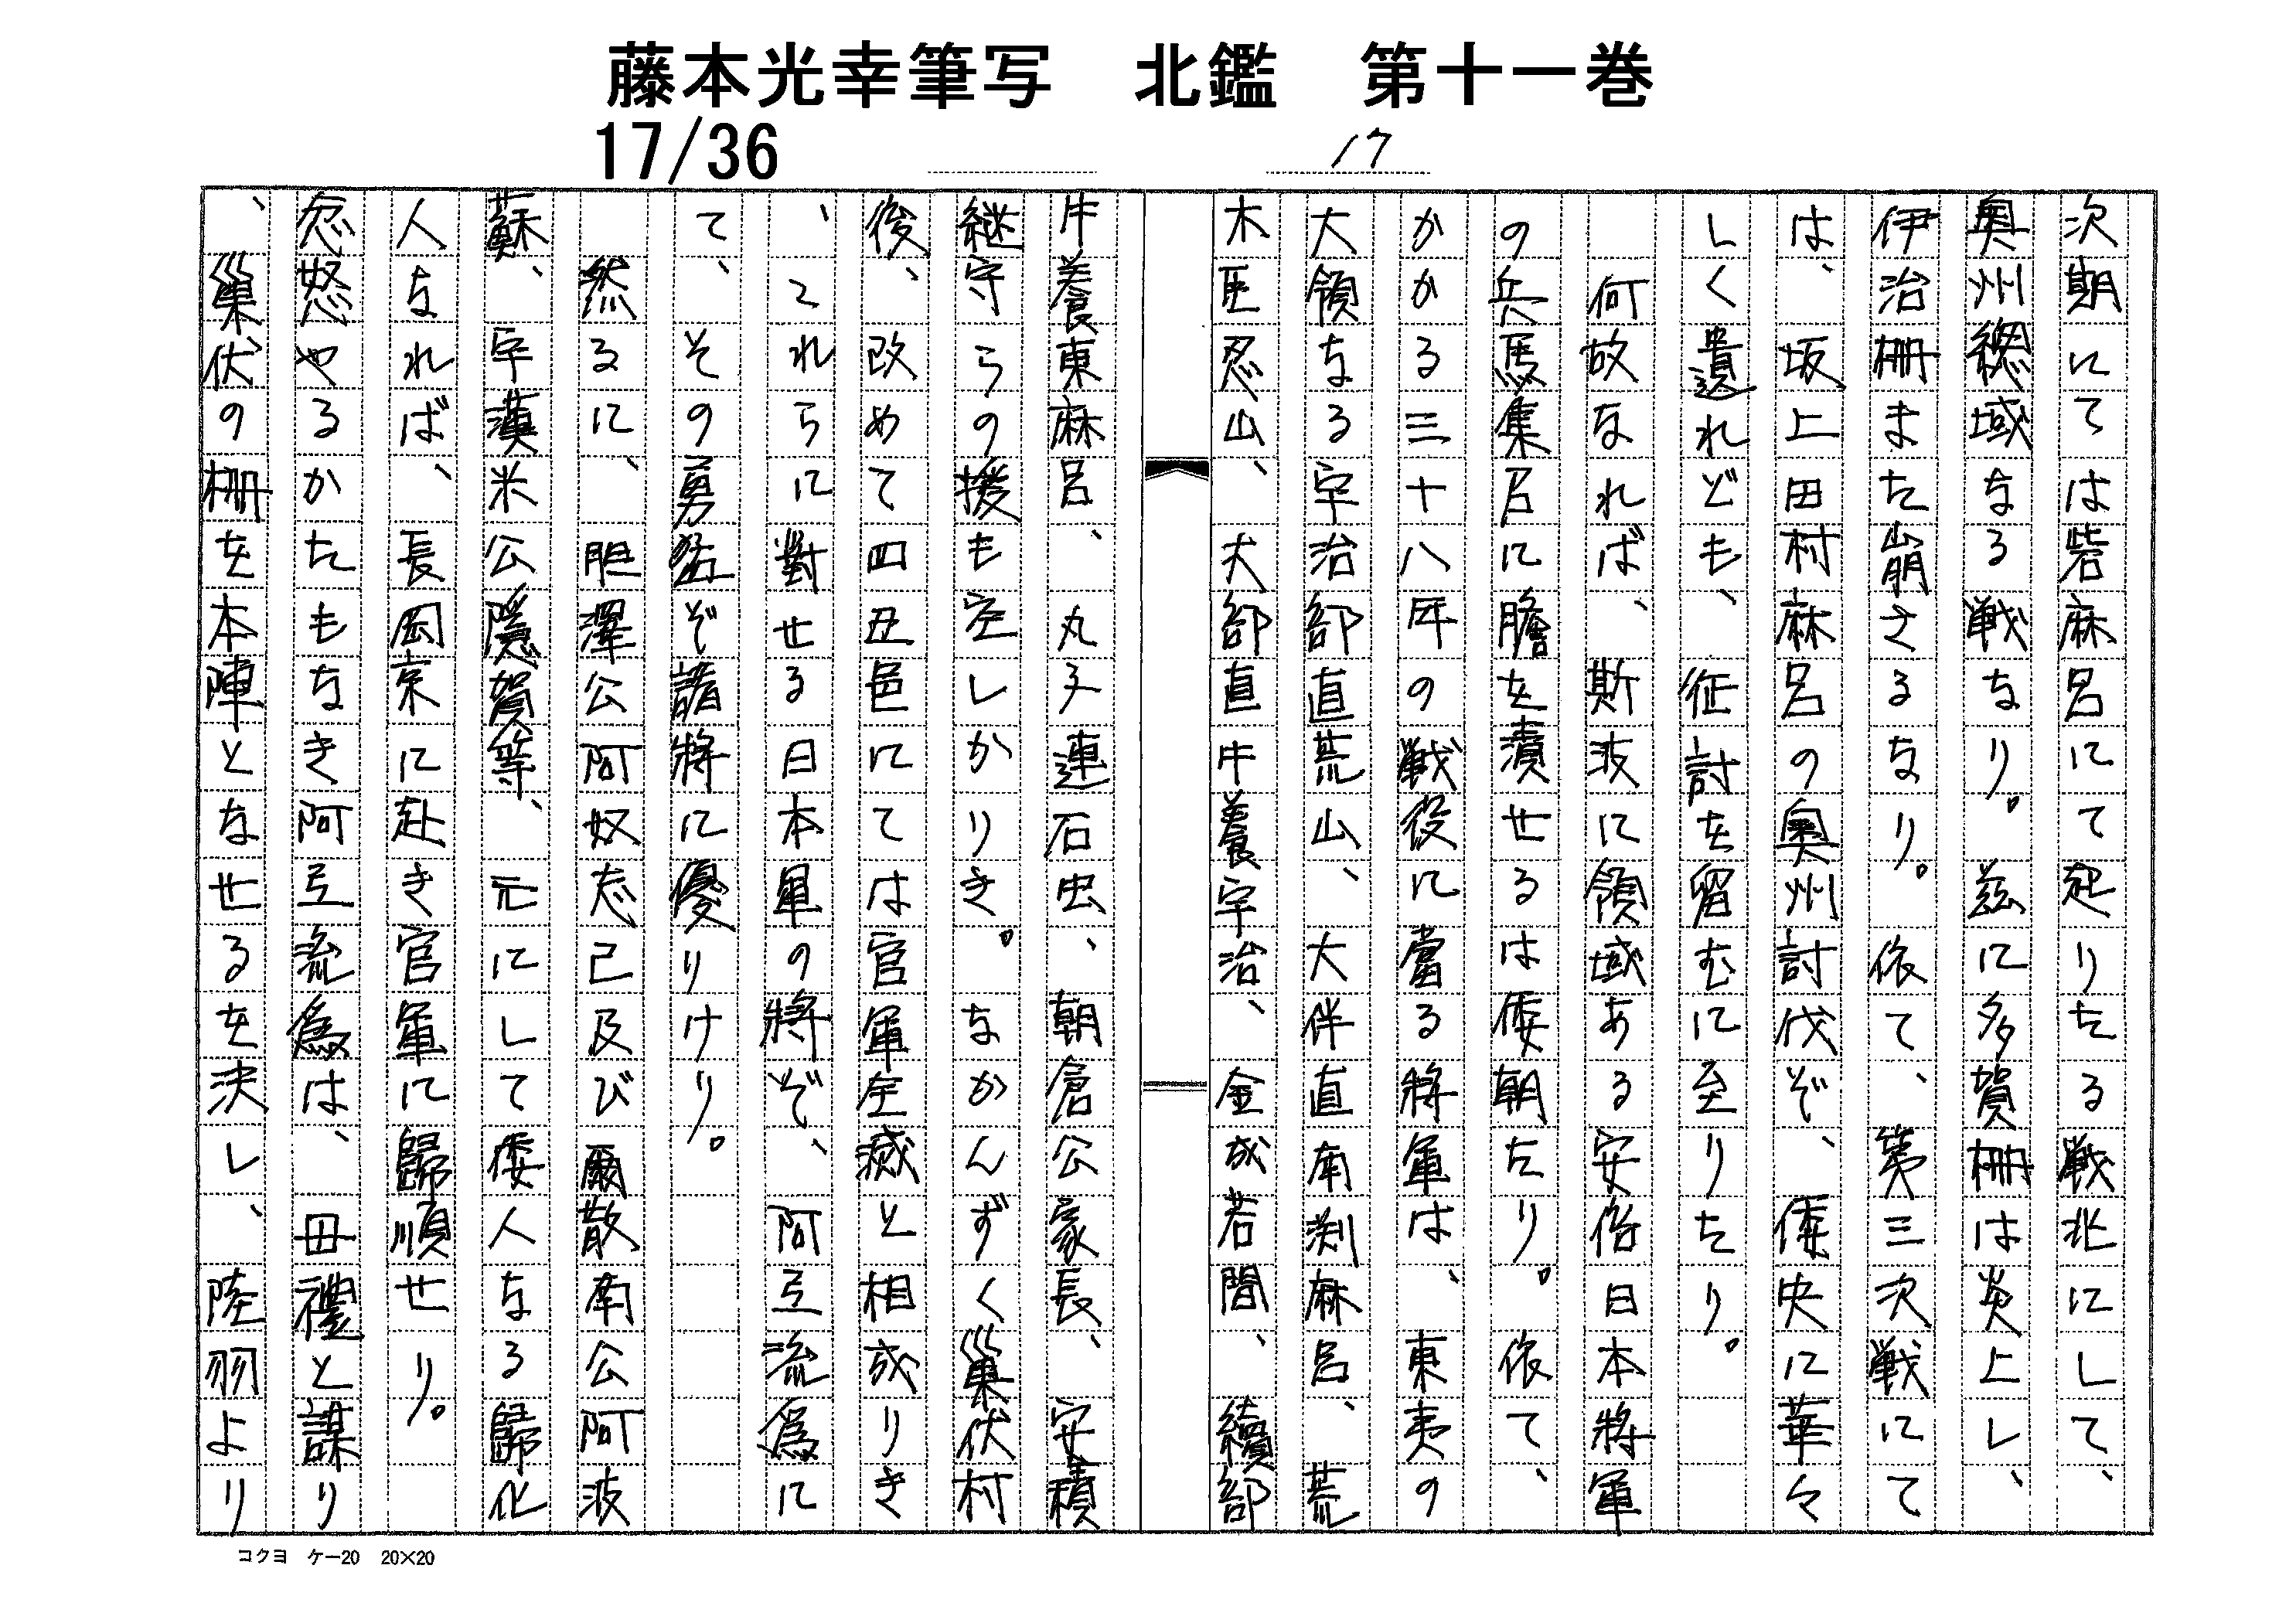 藤本光幸筆写　北鑑　第十一巻
17/36
17
次期にては砦麻呂にて起りたる戦北にして、
奥州總域なる戦なり。茲に多賀柵は炎上し、
伊治柵また崩さるなり。依て、第三次戦にて
は、坂上田村麻呂の奥州討伐ぞ、倭史に華々
しく遺れども、征討を留むに至りたり。
何故なれば、斯波に領域ある安倍日本将軍
の兵馬集召に膽を潰せるは倭朝たり。依て、
かかる三十八年の戦役に當る將軍は、東夷の
大領なる宇治部直荒山、大伴直南渕麻呂、荒
木臣忍山、大部直牛養宇治、金成若間、續部
牛養東麻呂、丸子連石虫、朝倉公家長、安積
継守らの援も空しかりき。なかんずく巣伏村
後、改めて四丑邑にては官軍全滅と相成りき
、これらに對せる日本軍の將ぞ、阿弖流為に
て、その勇猛ぞ諸將に優りけり。
然るに、胆澤公阿奴志己及び爾散南公阿波
蘇、宇漢米公隠賀等、元にして倭人なる歸化
人なれば、長岡京に赴き官軍に歸順せり。
忿怒やるかたもなき阿弖流為は、母禮と謀り
、巣伏の柵を本陣となせるを決し、陸羽より
コクヨ　ケー20　20×20